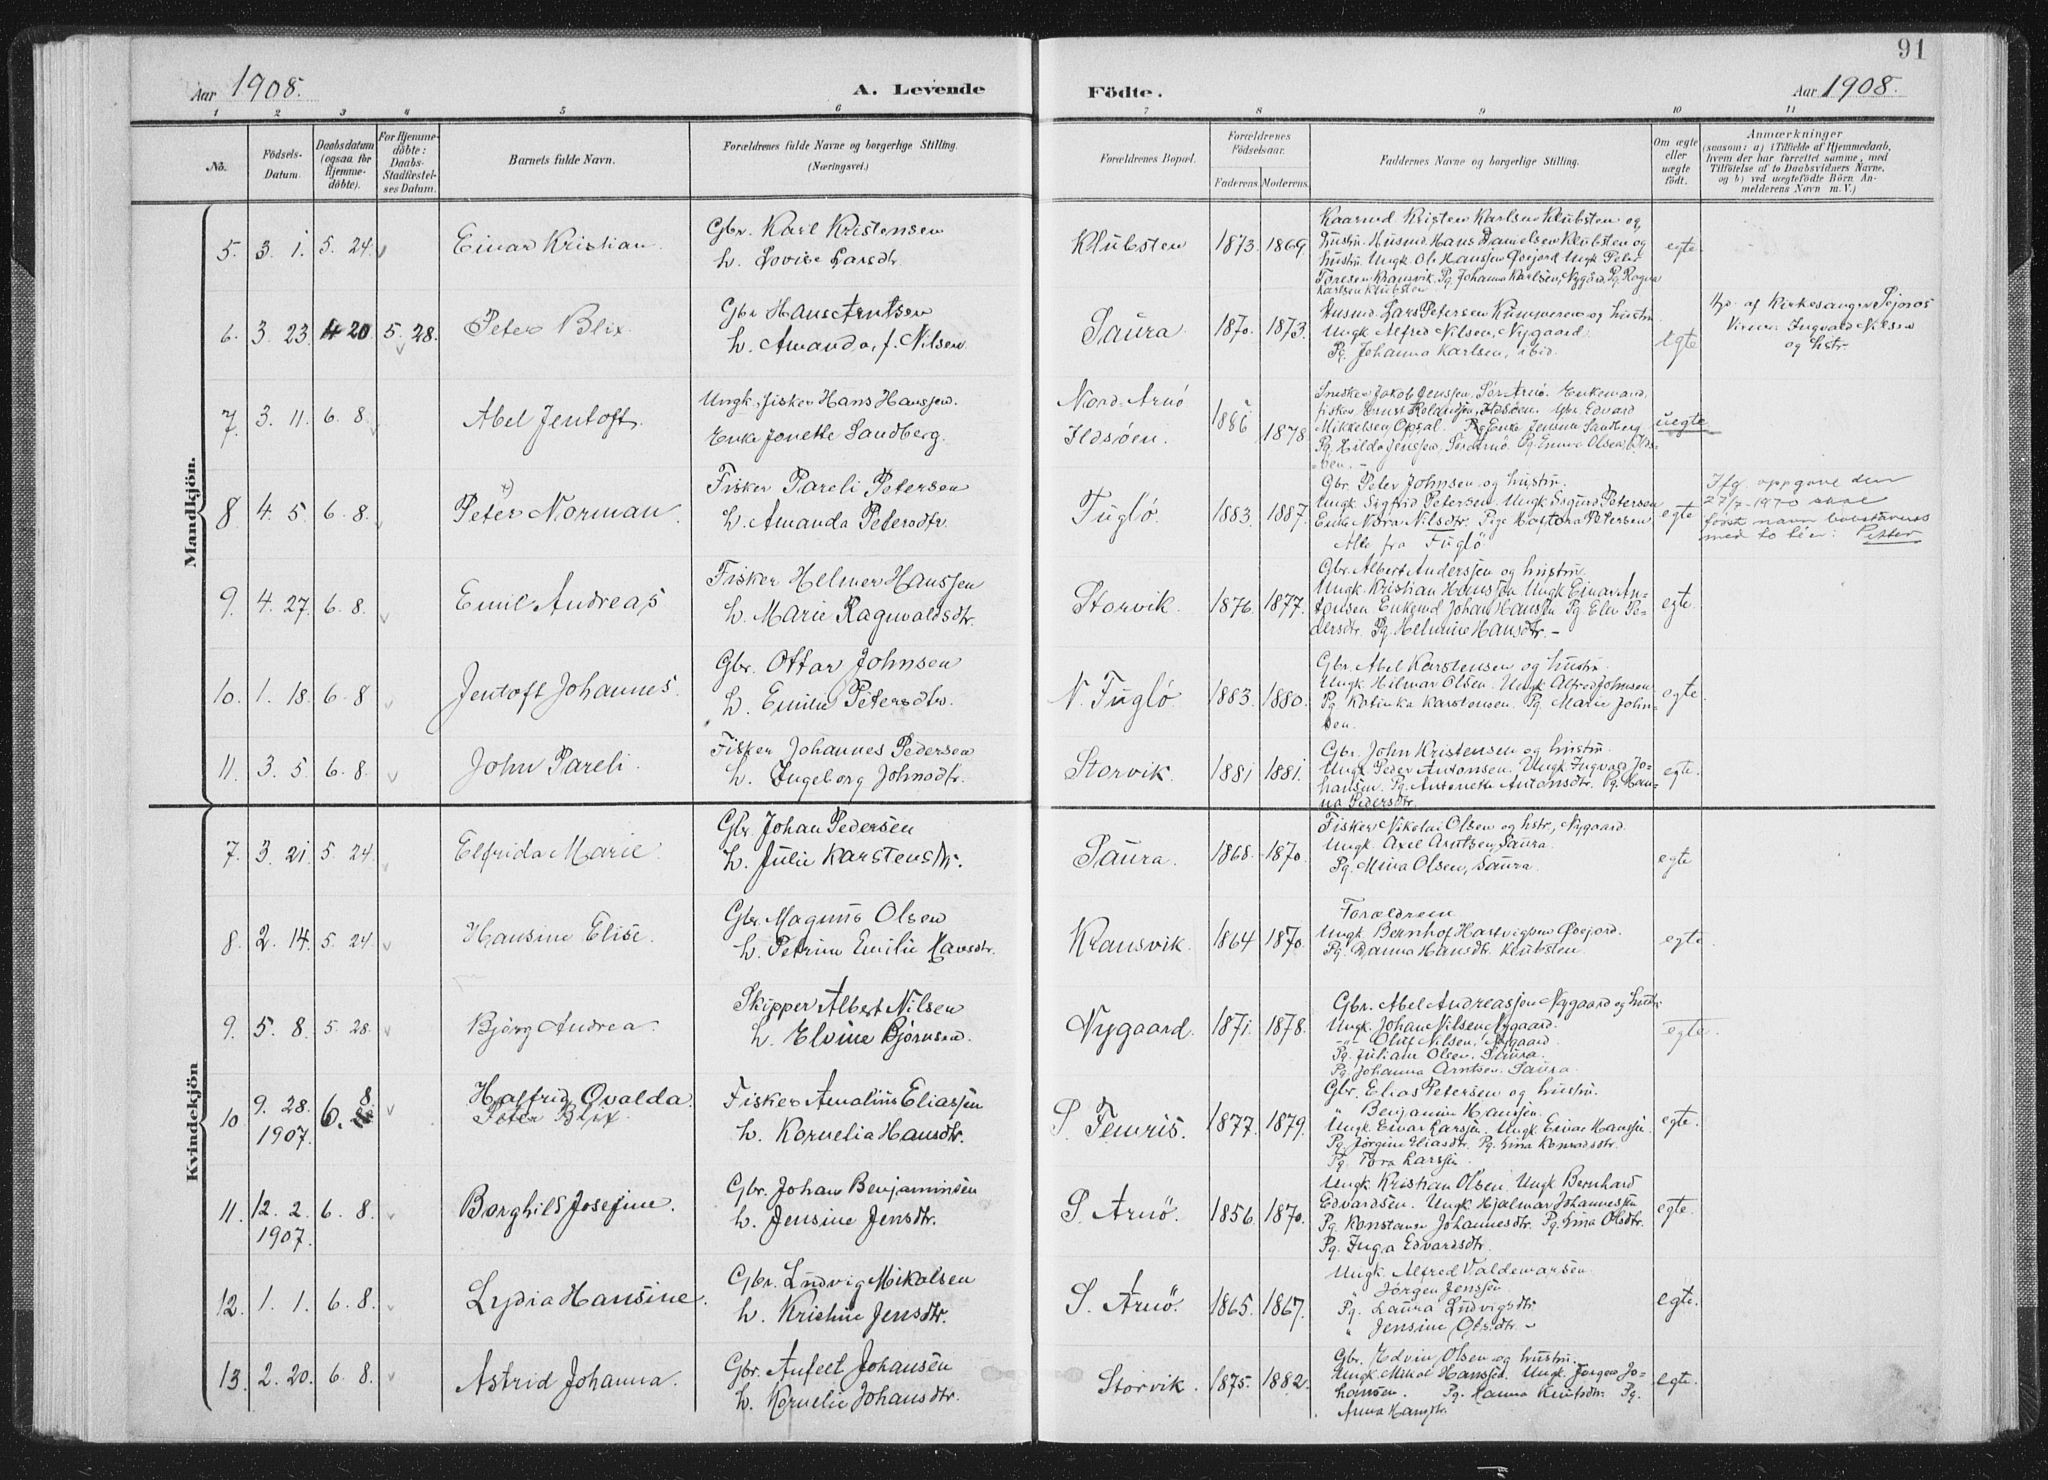 91
Aar 1908.
A. Levende
Födte.
Aar 1908.
1 2 3 4 5 6 7 8 9 10 11
No.
Födsels-
Datum.
Daabsdatum
(ogsaa for
Hjemme-
döbte).
For Hjemme-
döbte:
Daabs-
Stadfæstel-
ses Datum.
Barnets fulde Navn.
Forældrenes fulde Navne og borgerlige Stilling.
(Næringsvei.)
Forældrenes Bopæl.
Forældrenes
Födselsaar.
Faderens. Moderens.
Faddernes Navne og borgerlige Stilling.
Om ægte
eller
uægte
födt.
Anmærkninger
(saasom: a) i Tilfælde af Hjemmedaab,
hvem der har forrettet samme, med
Tilföielse af to Daabsvidners Navne,
og b) ved uægtefödte Börn An-
melderens Navn m. V.)
Mandkjön.
5. 3. 1. 5. 24. Einar Kristian.
Gbr. Karl Kristensen
h. Lovise Larsdtr.
Klubsten 1873. 1869.
Kaarmd. Kristen Karlsen Klubsten og
hustru. Husmd. Hans Danielsen Klubsten og
hustru. Ungk. Ole Hanssen Øvejord. Ungk. Peter
Toresen Kransvik. Pg. Johanna Karlsen, Nygård, Pg. Ragna
Karlsen Klubsten
egte.
6. 3. 23. 4 20 5. 28. Peter Blix.
Gbr Hans Arntsen
h. Amanda, f. Nilsen
Saura 1870. 1873.
Husmd. Lars Petersen Kummeren og hustru.
Ungk Alfred Nilsen, Nygaard.
Pg. Johanna Karlsen, ibid.
egte
Hjd. af Kirkesanger Sejnæs
Vidner: Ingvald Nilsen
og hstr.
7. 3. 11. 6. 8. Abel Jentoft.
Ungk. fisker Hans Hanssen.
Enke Jonette Sandberg.
Nord-Arnö
Ildsöen.
1886 1878.
Snekker Jakob Jenssen, Sör Arnö. Enkemand,
fisker, Ernst Rolandsen, Ildsöen. Gbr. Edvard
Mikkelsen Opsal. Pg. Enke Jensine Sandberg
Pg. Hilda Jenssen, Sör Arnö. Pg. Emma Olsen, Ilds-
öen. –
uegte
8 4. 5. 6. 8. Peter Norman.
Fisker Pareli Petersen
h. Amanda Petersdtr.
Fuglö. 1883. 1887.
Gbr. Peter Johnsen og hustru.
Ungk. Sigfrid Petersen. Ungk. Sigurd Petersen
Enke Nora Nilsdtr. Pige Hartora Petersen
Alle fra Fuglö
egte
Ifg. oppgave den
27/7-1970 skal
först navn bokstaveres
med to t'er: Petter
9. 4. 27. 6. 8. Emil Andreas
Fisker Helmer Hanssen
h. Marie Ragnvaldsdtr.
Storvik. 1876. 1877.
Gbr. Albert Anderssen og hustru.
Ungk. Kristian Hanssen Ungk Einar An-
tonsen Enkemd Johan Hansen Pg Elen Pe-
dersdtr. Pg. Helmine Hansdtr. –
egte.
10. 1. 18. 6. 8 Jentoft Johannes.
Gbr. Ottar Johnsen
h. Emilie Petersdtr.
N. Fuglö 1883. 1880.
Gbr. Abel Karstensen og hustru.
Ungk. Hilmar Olsen. Ungk Alfred Johnsen
Pg. Katinka Karstensen. Pg. Marie John-
sen.
egte.
11. 3. 5. 6. 8. John Pareli.
Fisker Johannes Pedersen
h. Ingeborg Johnsdtr.
Storvik. 1881 1881.
Gbr. John Kristensen og hustru.
Ungk. Peder Antonsen. Ungk. Ingvald Jo-
hansen. Pg. Antonette Antonsdtr. Pg. Han-
na Pedersdtr.
egte.
Kvindekjön
7. 3. 21. 5. 24. Elfrida Marie.
Gbr. Johan Pedersen
h. Julie Karstensdtr.
Saura. 1868. 1870.
Fisker Nikolai Olsen og hstr, Nygaard.
Ungk. Axel Arntsen, Saura.
Pg. Mina Olsen, Saura.
egte
8. 2. 14. 5. 24. Hansine Elise.
Gbr. Magnus Olsen
h. Petrine Emilie Hansdtr.
Kransvik. 1864 1870.
Forældrene
Ungk. Bernhof Hartvigsen Øvejord.
Pg. Danna Hansdtr. Klubsten.
egte.
9. 5. 8. 5. 28. Bjórg Andrea.
Skipper Albert Nilsen
h. Elvine Björnsen.
Nygaard. 1871. 1878.
Gbr. Abel Andreassen Nygaard og hustr.
Ungk. Johan Nilsen, Nygaard.
–"– Oluf Nilsen, Nygaard
Pg. Juliane Olsen, Saura.
Pg. Johanna Arntsen. Saura.
egte.
10. 9. 28. 1907. 6. 8. Halfrid Ovalda.
Peter Blix.
Fisker Amalius Eliassen
h. Kornelia Hansdtr.
S. Femris. 1877. 1879.
Gbr. Elias Petersen og hustru.
" Benjamin Hanssen.
Ungk. Einar Larssen. Ungk. Einar Hanssen
Pg. Jörgine Eliasdtr. Pg. Lina Konradsdtr.
Pg. Tora Larssen.
egte.
11. 12. 2. 1907. 6. 8. Borghild Josefine.
Gbr. Johan Benjaminsen
h. Jensine Jensdtr.
S. Arnö. 1856. 1870.
Ungk. Kristian Olsen. Ungk Bernhard
Edvardsen. Ungk. Hjalmar Johannessen
Pg. Konstanse Johannesdtr. Pg. Lina Olsdtr.
Pg. Inga Edvardsdtr.
egte.
12. 1. 1. 6. 8. Lydia Hansine.
Gbr. Ludvig Mikalsen
h. Kristine Jensdtr.
S. Arnö. 1865. 1867.
Ungk. Alfred Valdemarsen.
" Jörgen Jenssen
Pg. Laura Ludvigsdtr
" Jensine Olsdtr –
egte.
13. 2. 20. 6. 8. Astrid Johanna.
Gbr. Anfeet Johansen
h. Kornelie Johansdtr.
Storvik. 1875. 1882.
Gbr. Edvin Olsen og hustru.
Ungk Mikal Hanssen. Ungk. Jörgen Jo-
hansen. Pg. Hanna Knutsdtr. Pg.
Anna Hansdtr.
egte.